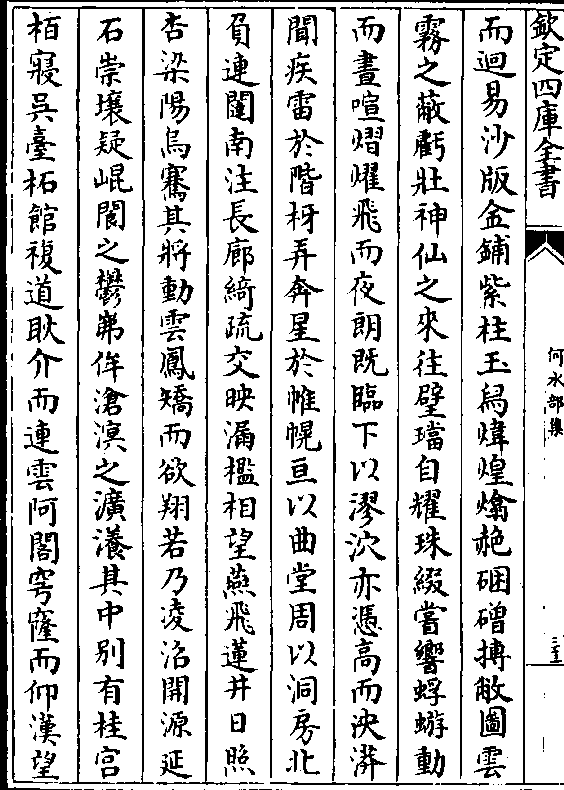 欽定四庫全書
何水部集
而迴易沙版金鋪紫柱玉舄煒煌爚赩硱磳搏敞圖雲
霧之蔽虧壯神仙之來往壁璫自耀珠綴嘗響蜉蝣動
而晝喧熠燿飛而夜朗既臨下以漻泬亦憑高而泱漭
聞疾雷於階枒弄奔星於帷幌亘以曲堂周以洞房北
負連闥南注長廊綺疏交映漏檻相望燕飛蓮井日照
杏梁陽烏騫其將動雲鳳矯而欲翔若乃凌沼開源延
石崇壤疑崐閬之鬱岪侔滄溟之瀇瀁其中別有桂宫
栢寢吳臺柘館複道耿介而連雲阿閣窂窿而仰漢望